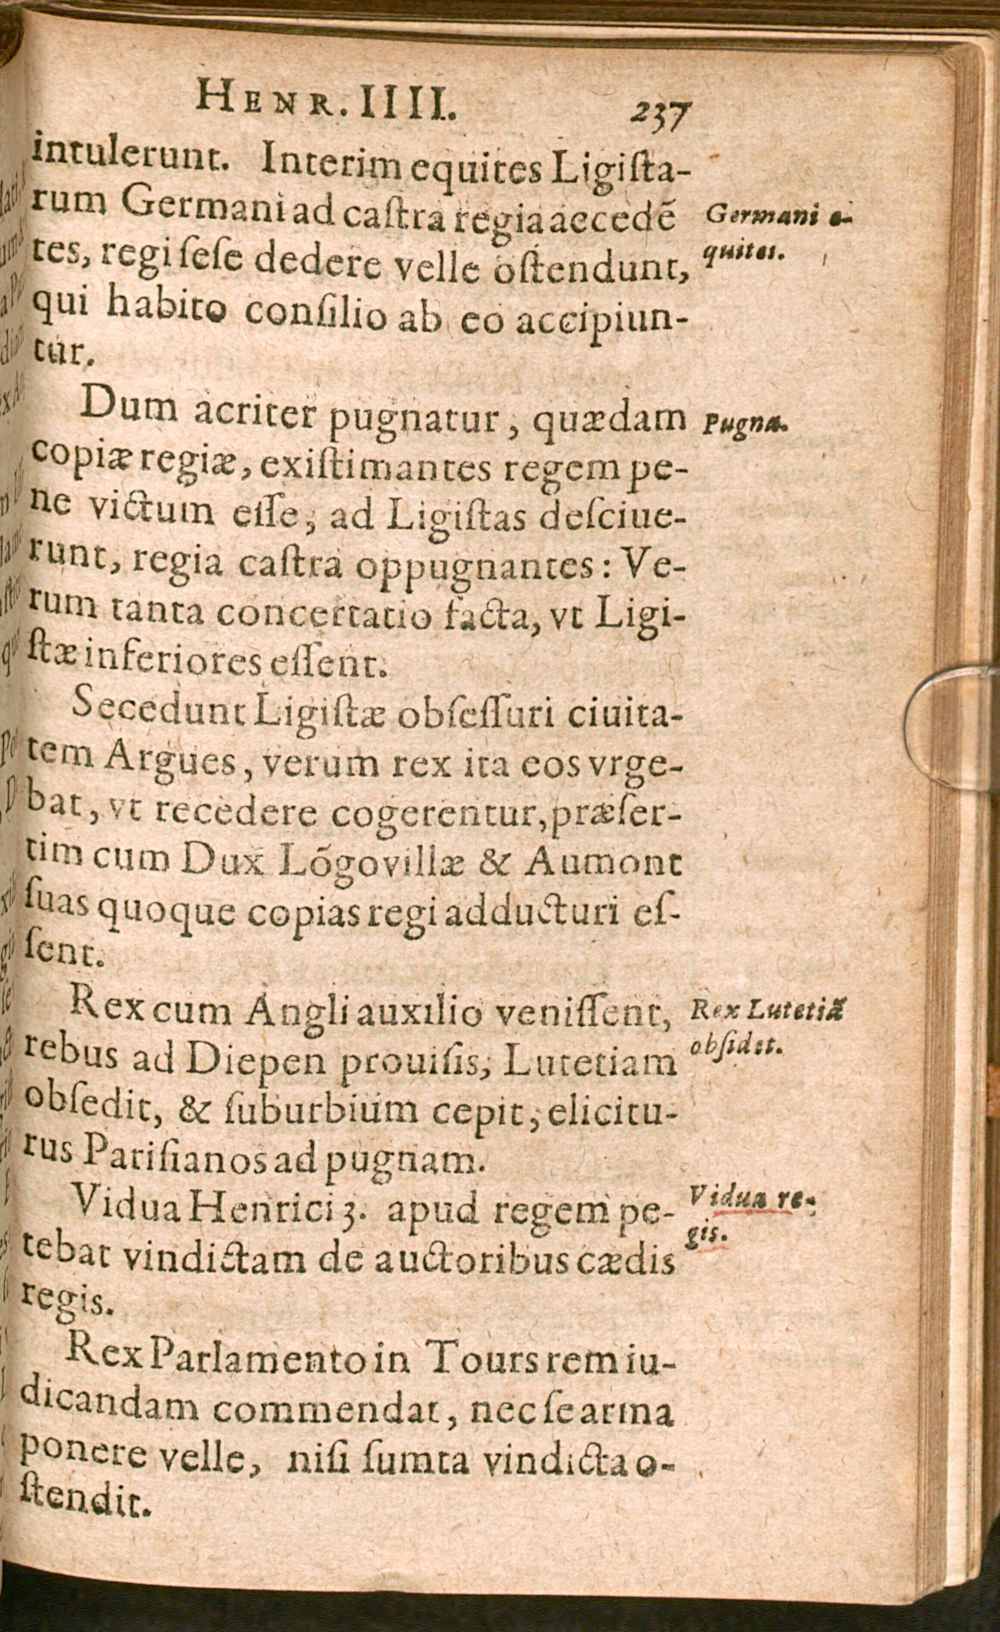 HENR. IIII. 237
intulerunt. Interim equites Ligiſta-
rum Germani ad caſtra regia accedē
tes, regi ſeſe dedere velle oſtendunt,
qui habito conſilio ab eo accipiun-
tur.
Germani e-
quites.
Dum acriter pugnatur, quædam
copiæ regiæ, exiſtimantes regem pe-
ne victum eſſe, ad Ligiſtas deſciue-
runt, regia caſtra oppugnantes: Ve-
rum tanta concertatio facta, vt Ligi-
ſtæ inferiores eſſent.
Pugna.
Secedunt Ligiſtæ obſeſſuri ciuita-
tem Argues, verum rex ita eos vrge-
bat, vt recedere cogerentur, præſer-
tim cum Dux Lõgovillæ & Aumont
ſuas quoque copias regi adducturi eſ-
ſent.
Rex cum Angli auxilio veniſſent,
rebus ad Diepen prouiſis, Lutetiam
obſedit, & ſuburbium cepit, elicitu-
rus Pariſianos ad pugnam.
Rex Lutetiã
obſidet.
Vidua Henrici 3. apud regem pe-
tebat vindictam de auctoribus cædis
regis.
Vidua re-
gis.
Rex Parlamento in Tours rem iu-
dicandam commendat, nec ſe arma
ponere velle, niſi ſumta vindicta o-
ſtendit.